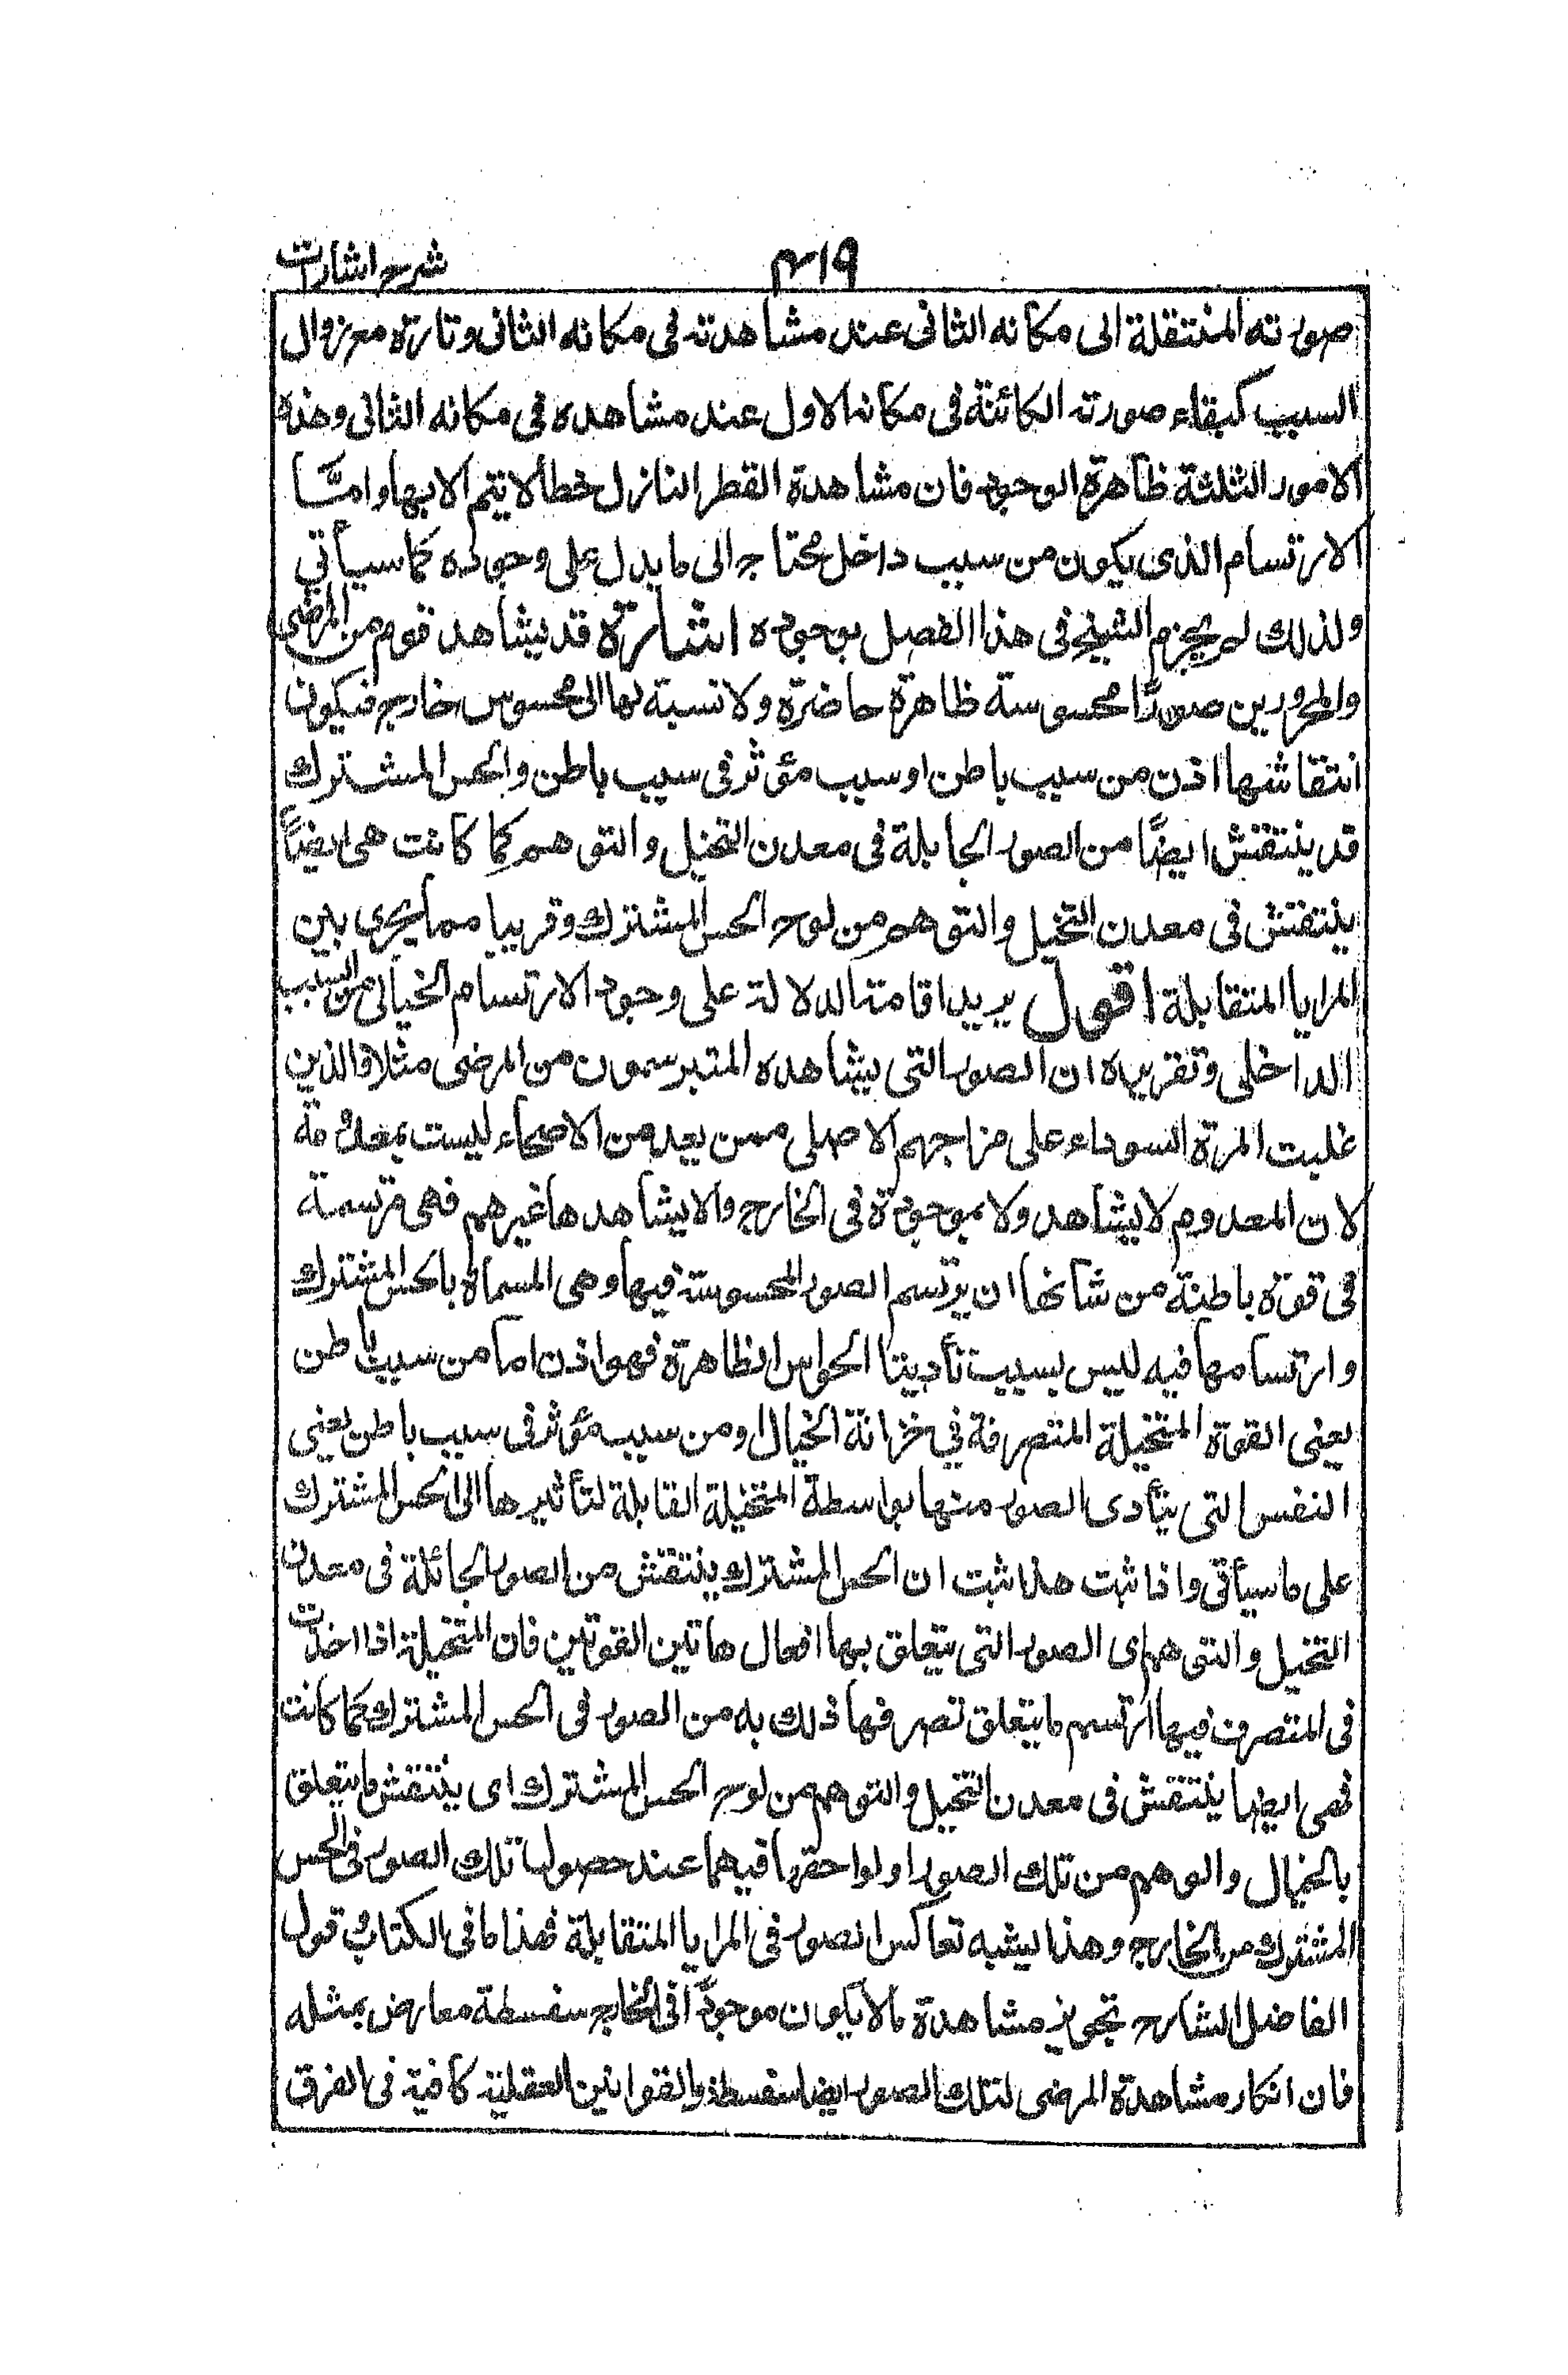 شرح اشارات
۴۱۹
صورته المنتقلة الى مكانه الثانى عند مشاهدته فى مكانه الثانى وتارة مع زوال
السبب كبقاء صورته الكائنة فى مكانه الاول عند مشاهده فى مكانه الثانى وهذه
الامور الثلثة ظاهرة الوجود فان مشاهدة القطر النازل خطا لا تتم الا بها وامّا
الارتسام الذى يكون من سبب داخل محتاج الى ما يدل على وجوده كما سيأتي
ولذلك لم يجزم الشيخ فى هذا الفصل بوجوده اشارة قد يشاهد قوم من المرضى
والمحرورين صورًا محسوسة ظاهرة حاضرة ولا نسبة لها الى محسوس خارج فيكون
انتقاشها اذن من سبب باطن او سبب مؤثر فى سبب باطن والحس المشترك
قد ينتقش ايضًا من الصور الجايلة فى معدن التخيل والتوهم كما كانت هى ايضًا
ينتقش فى معدن التخيل والتوهم من لوح الحس المشترك وقريبا مما يجرى بين
المرايا المتقابلة اقول يريد اقامة الدلالة على وجود الارتسام الخيالى من السبب
الداخلى وتقريره ان الصور التى يشاهده المتبرسمون من المرضى مثلا والذين
غلبت المرة السوداء على مزاجهم الاصلى ممن يعد من الاصحاء ليست بمعدومة
لان المعدوم لا يشاهد ولا بموجودة فى الخارج والا يشاهدها غيرهم فهى مرتسمة
فى قوة باطنة من شانها ان يرتسم الصور المحسوسة فيها وهى المسماة بالحس المشترك
وارتسامها فيه ليس بسبب تأديتا الحواس الظاهرة فهو اذن اما من سبب باطن
يعنى القوة المتخيلة المتصرفة في خزانة الخيال او من سبب مؤثر فى سبب باطن يعنى
النفس التى يتأدى الصور منها بواسطة المتخيلة القابلة لتأثيرها الى الحس المشترك
على ما سيأتى واذا ثبت هذا ثبت ان الحس المشترك ينتقش من الصور الجائلة فى معدن
التخيل والتوهم اى الصور التى يتعلق بها افعال هاتين القوتين فان المتخيلة اذا اخذت
فى المتصرف فيها ارتسم ما يتعلق تصرفها ذلك به من الصور فى الحس المشترك كما كانت
فهى ايضا ينتقش فى معدن التخيل والتوهم من لوح الحس المشترك اى ينتقش ما يتعلق
بالخيال والوهم من تلك الصور او لواحقها فيهما عند حصول تلك الصور فى الحس
المشترك من الخارج وهذا يشبه تعاكس الصور فى المرايا المتقابلة فهذا ما فى الكتاب وقول
الفاضل الشارح تجويز مشاهدة مالا يكون موجودًا فى الخارج سفسطة معارض بمثله
فان انكار مشاهدة المرضى لتلك الصور ايضا سفسطة والقوانين العقلية كافية فى الفرق